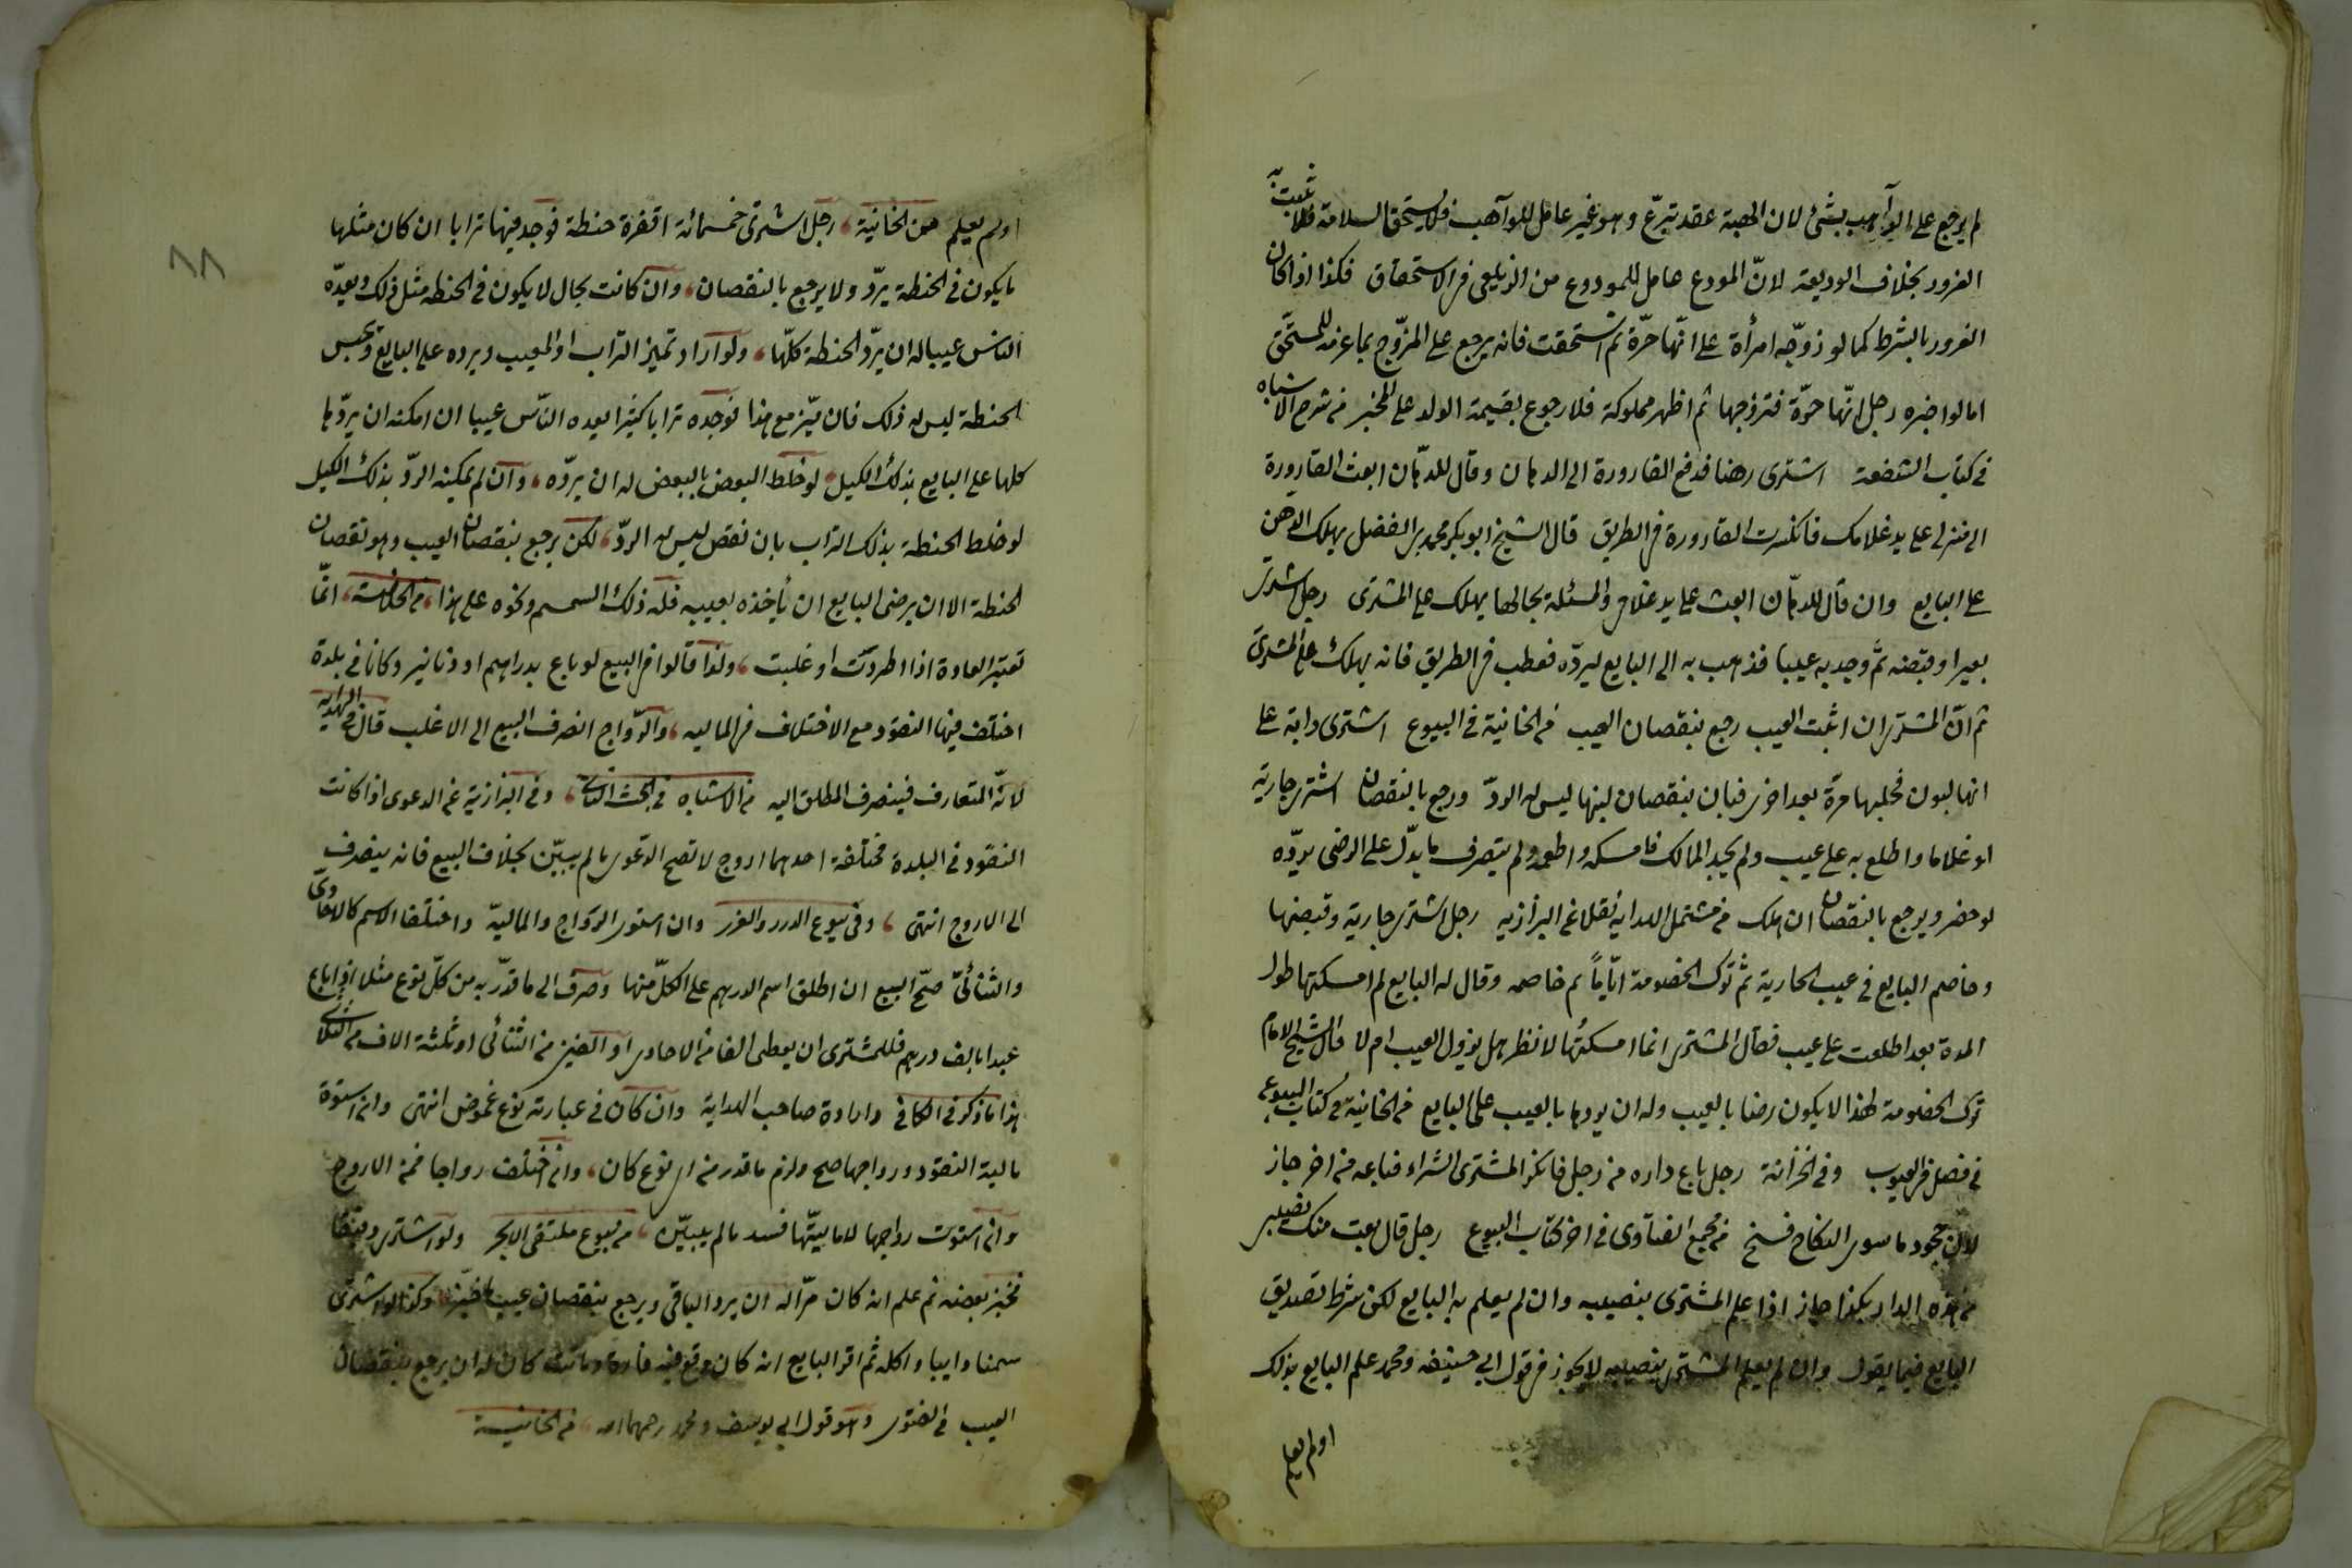 لم يرجع على الواهب بشئ لان الهبة عقد تبرّع وهو غير عامل للواهب فلا يستحق السلامة فلا يثبت به
الغرور بخلاف الوديعة لانّ المودع عامل للمودع من الزيلعى فى الاستحقاق فكذا اذا كان
الغرور بالشرط كما لو زوّجه امرأة على انّها حرّة ثم استحقت فانه يرجع على المزوّج بما غرمه للمستحق
اما لو اخبره رجل انّها حرّة فتزوجها ثم اظهر مملوكة فلا رجوع بقيمة الولد على المخبر من شرح الاشباه
فى كتاب الشفعة اشترى دهنا فدفع القارورة الى الدهان وقال للدهّان ابعث القارورة
الى منزلى على يد غلامك فانكسرت القارورة فى الطريق قال الشيخ ابو بكر محمد بن الفضل يهلك الدهن
على البايع وان قال للدهّان ابعث على يد غلامى والمسئلة بحالها يهلك على المشترى رجل اشترى
بعيرا وقبضه ثمّ وجد به عيبا فذهب به الى البايع ليردّه فعطب فى الطريق فانه يهلك على المشترى
ثم انّ المشترى ان اثبت العيب رجع بنقصان العيب من الخانية فى البيوع اشترى دابة على
انها لبون فحلبها مرة بعد اخرى فبان بنقصان لبنها ليس له الردّ ورجع بالنقصان اشترى جارية
او غلاما واطلع به على عيب ولم يجد المالك فامسكه واطعمه ولم يتصرف ما يدلّ على الرضى يردّه
لو حضر ويرجع بالنقصان ان هلك من مشتمل الهداية نقلا عن البزازيه رجل اشترى جارية وقبضها
وخاصم البايع فى عيب الجارية ثم ترك الخصومة ايّاماً ثم خاصمه وقال له البايع لم امسكتها طول
المدة بعد اطلعت على عيب فقال المشترى انما امسكتُها لانظر هل يزول العيب ام لا قال الشيخ الامام
ترك الخصومة لهذا لا يكون رضا بالعيب وله ان يردها بالعيب على البايع من الخانية فى كتاب البيوع
فى فصل فى العيوب وفى الخزانة رجل باع داره من رجل فانكر المشترى الشراء فباعه من اخر جاز
لان جحود ما سوى النكاح فسخ من مجمع الفتاوى فى اخر كتاب البيوع رجل قال بعت منك نصيبى
من هذه الدار بكذا جاز اذا علم المشترى بنصيبه وان لم يعلم به البايع لكن شرط تصديق
البايع فيما يقول وان لم يعلم المشترى بنصيبه لا يجوز فى قول ابى حنيفه ومحمد علم البايع بذلك
او لم يعلم
٨٨
او لم يعلم من الخانية رجل اشترى خمسمائة اقفزة حنطة فوجد فيها ترابا ان كان مثلها
ما يكون فى الحنطة يردّ ولا يرجع بالنقصان وان كانت بحال لا يكون فى الحنطه مثل ذلك ويعدّه
الناس عيبا له ان يردّ الحنطة كلّها ولو اراد تميز التراب او المعيب ويرده على البايع ويحبس
الحنطة ليس له ذلك فان ميّز مع هذا فوجده ترابا كثيرا يعده النّاس عيبا ان امكنه ان يردّها
كلها على البايع بذلك الكيل لو خلط البعض بالبعض له ان يردّه وان لم يمكنه الردّ بذلك الكيل
لو خلط الحنطة بذلك التراب بان نقص ليس له الردّ لكن يرجع بنقصان العيب وهو نقصان
الحنطة الا ان يرضى البايع ان يأخذه بعيبه فله ذلك السمسم ونحوه على هذا من الخلاصة انّما
تعتبر العادة اذا اطردت او غلبت ولذا قالوا فى البيع لو باع بدراهم او دنانير وكانا فى بلدة
اختلف فيها النقود مع الاختلاف فى الماليه والرّواج انصرف البيع الى الاغلب قال فى الهدايه
لانّه المتعارف فينصرف المطلق اليه من الاشباه فى البحث الثانى وفى البزازية عن الدعوى اذا كانت
النقود فى البلدة مختلفة احدهما اروج لا تصح الدعوى ما لم يبيّن بخلاف البيع فانه ينصرف
الى الاروج انتهى وفى بيوع الدرر والغرر وان استوى الرّواج والماليّة واختلفا الاسم كالاحادى
والثنائى صحّ البيع ان اطلق اسم الدرهم على الكلّ منها وصرف الى ما قدّر به من كلّ نوع مثلا اذا باع
عبدا بالف درهم فللمشترى ان يعطى الفا من الاحادى او الفين من الثنائى او ثلثة الاف من الثلاثى
هذا ما ذكر فى الكافى واراده صاحب الهداية وان كان فى عبارته نوع غموض انتهى وان استوة
مالية النقود ورواجها صح ولزم ما قدر من اى نوع كان وان اختلف رواجا فمن الاروج
وان استوت رواجها لا ماليتّها فسد ما لم يبيّن من بيوع ملتقى الابحر ولو اشترى دقيقا
فخبز بعضه ثم علم انه كان مرّا له ان يرد الباقى ويرجع بنقصان عيب ما خبز وكذا لو اشترى
سمنا ذايبا واكله ثم اقر البايع انه كان وقع فيه فارة وماتت كان له ان يرجع بنقصان
العيب فى الفتوى وهو قول ابى يوسف ومحمد رحمهما الله من الخانية